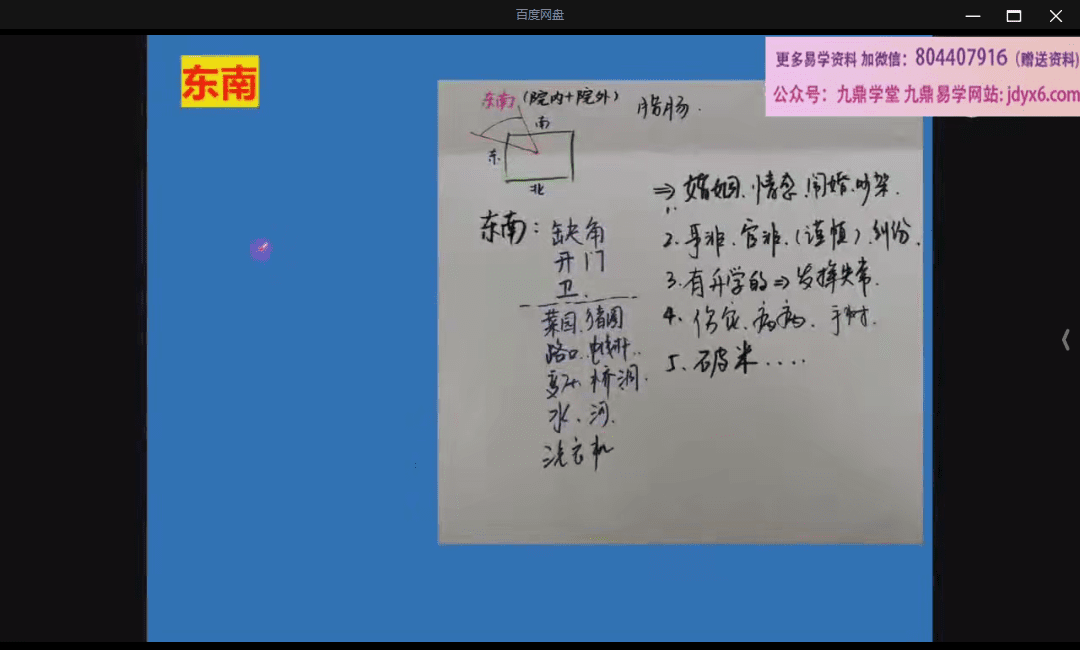 百度网盘
更多易学资料 加微信：804407916（赠送资料)
公众号：九鼎学堂 九鼎易学网站: jdyx6.com
东南
东南（院内+院外）
南
东
北
东南：缺角
开门
卫.
菜园.猪圈
路口.
桥洞.
水、河.
洗衣机
⇒ 婚姻、情 闹婚.吵架.
2. 官非.（谨慎）.纠纷.
3. 有升学的⇒发挥失常.
4. 手术.
5、破米....